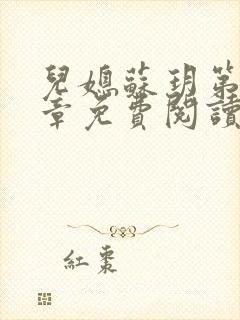 兒媳蘇玥第
章免費閱讀
紅棗